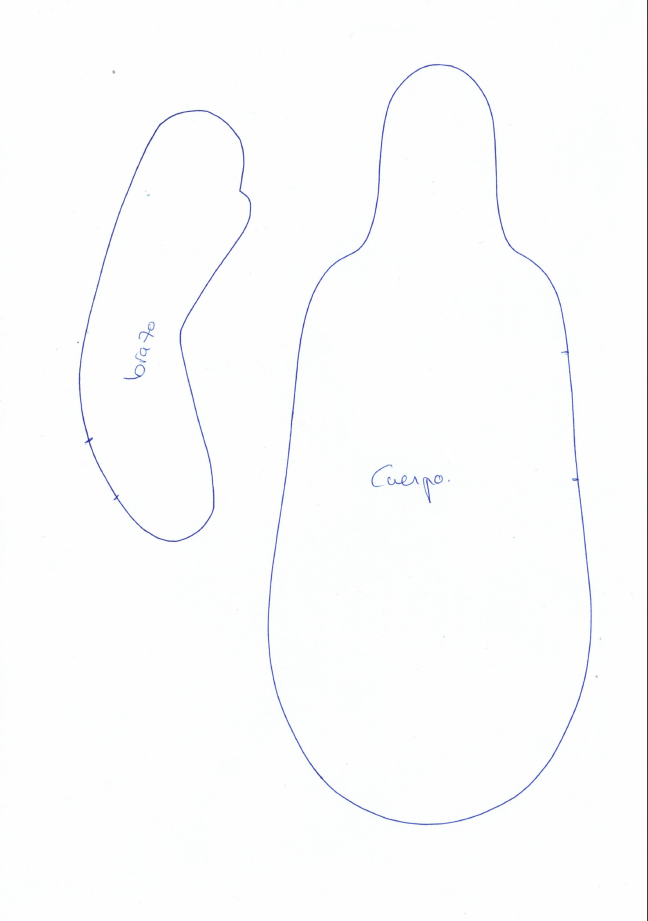 brazo
Cuerpo.